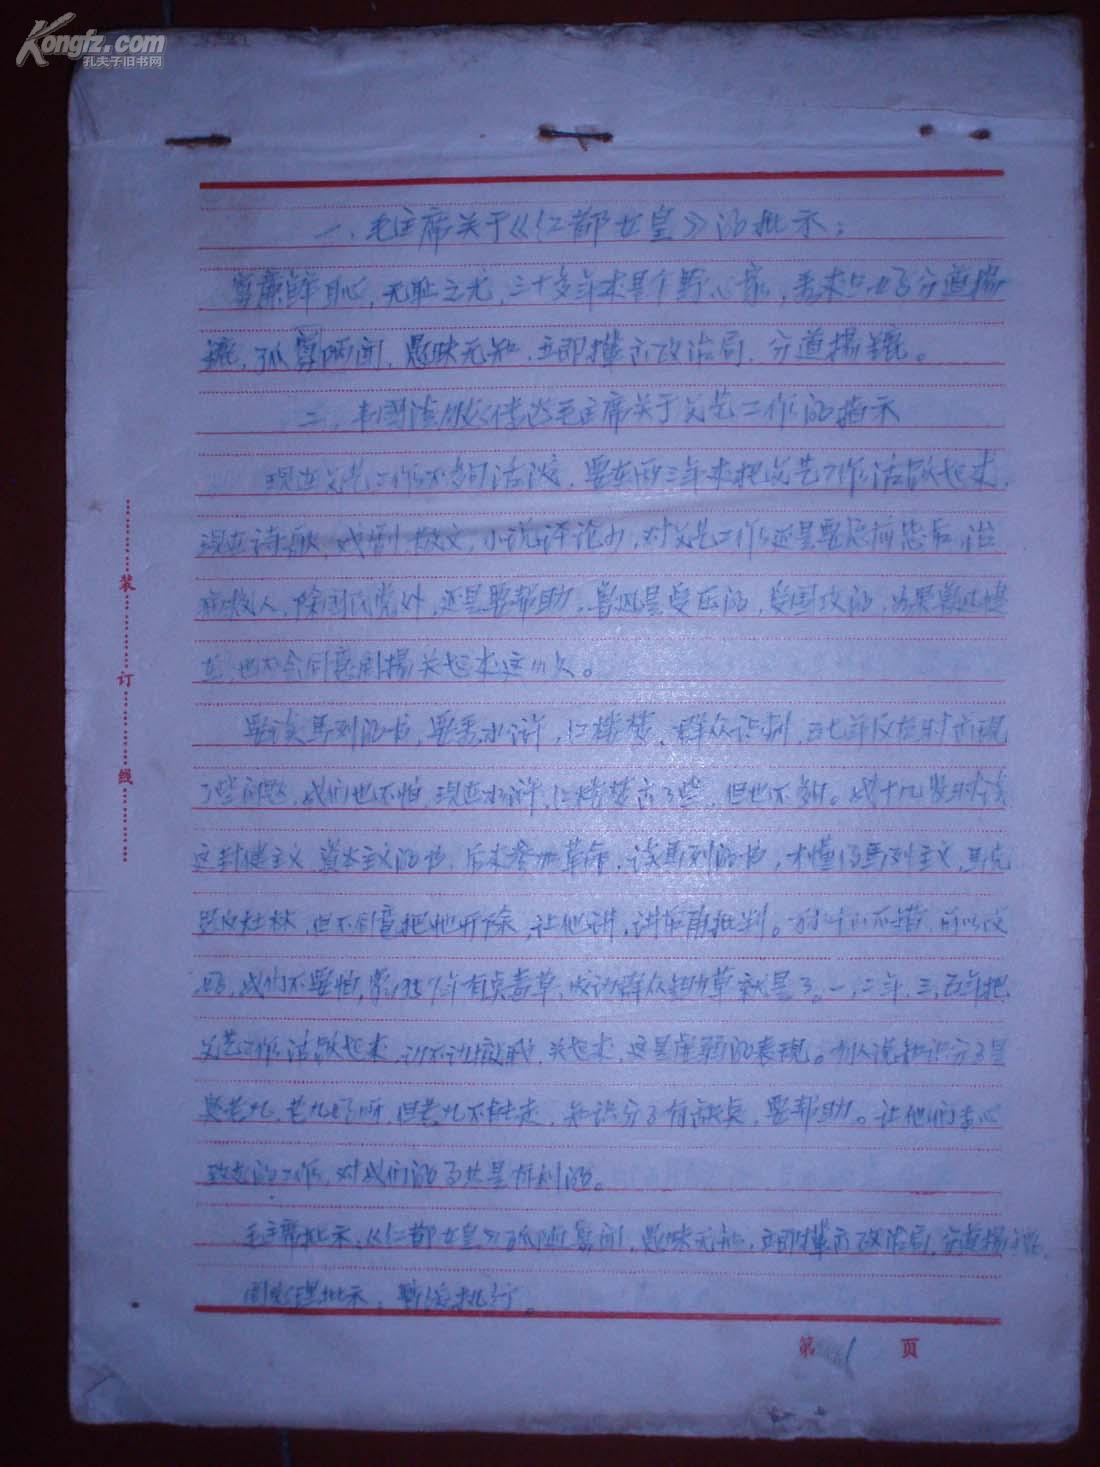 Kongfz.com
孔夫子旧书网
一、毛主席关于《红都女皇》的批示：
无耻之尤，三十多年来是个野心家，分道扬
镳，孤陋寡闻，愚昧无知，立即撵出政治局，分道扬镳。
二、传达毛主席关于文艺工作的指示
现在文艺工作不够活泼，要在两三年来把文艺工作活跃起来，
现在诗歌，戏剧，散文，小说评论少，对文艺工作还是要惩前毖后，治
病救人，除国民党外，还是要帮助，鲁迅是受压的，受围攻的，如果鲁迅健
在，也不会同意周扬关起来这一点。
要读马列的书，要看水浒，红楼梦，群众评判，五七年反右时出现
了些问题，我们也不怕，现在水浒，红楼梦出了些，但也不多。我十几岁时读
这封建主义，资本主义的书，后来参加革命，读马列的书，才懂得马列主义，马克
但不同意把他开除，让他讲，讲后再批判。
我们不要怕，象1957年有点毒草，发动群众锄草就是了。一，二年，三，五年把
文艺工作活跃起来，关起来，这是虚弱的表现。别人说知识分子是
臭老九，老九好啊，但老九不能走，知识分子有缺点，要帮助。让他们专心
致志的工作，对我们的事业是有利的。
毛主席批示：《红都女皇》孤陋寡闻，愚昧无知，立即撵出政治局，分道扬镳。
周总理批示：暂缓执行。
装订线
第 1 页